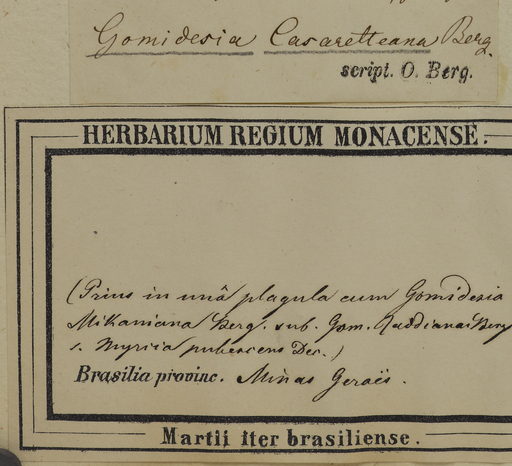 Gomidesia Casaretteana Berg.
script. O. Berg.
HERBARIUM REGIUM MONACENSE.
(Prius in unâ plagula cum Gomidesia
Mikaniana Berg. sub. Gom. Raddiana Berg
s. Myrcia pubescens Dec.)
Brasilia provinc. Minas Geraës.
Martii iter brasiliense.